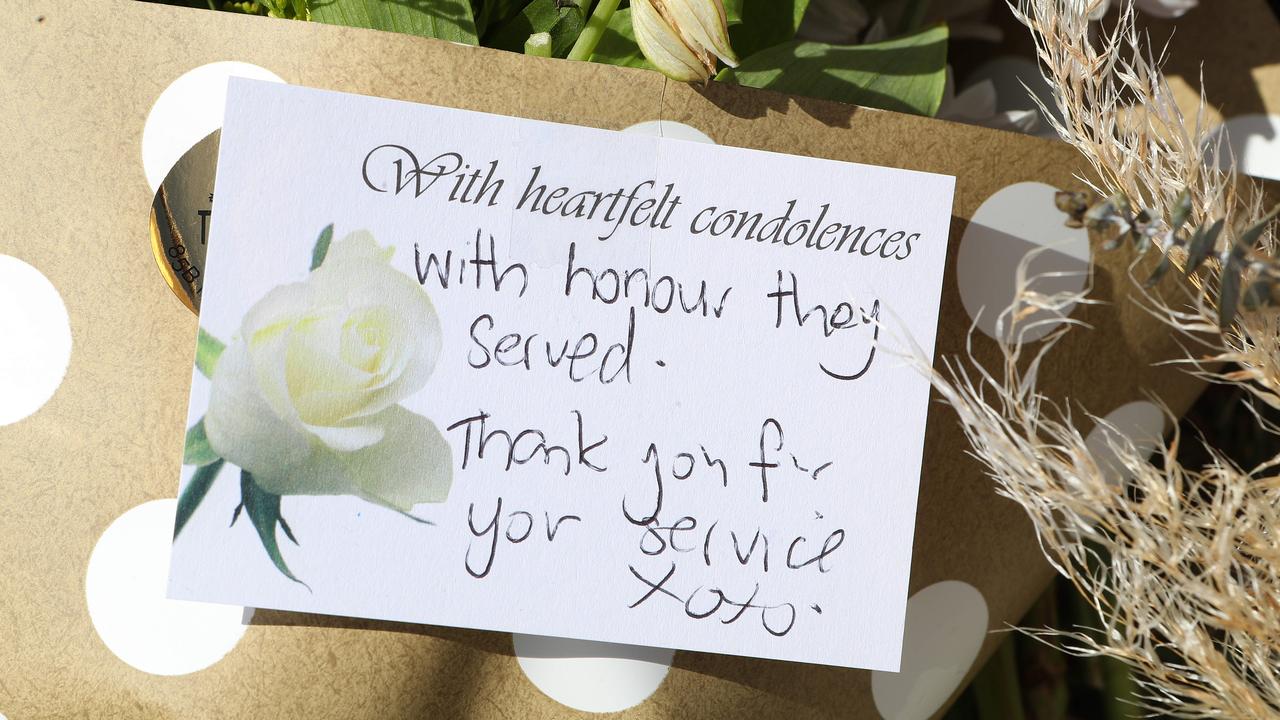 With heartfelt condolences
with honour they
served.
Thank you for
your service
xoxo.